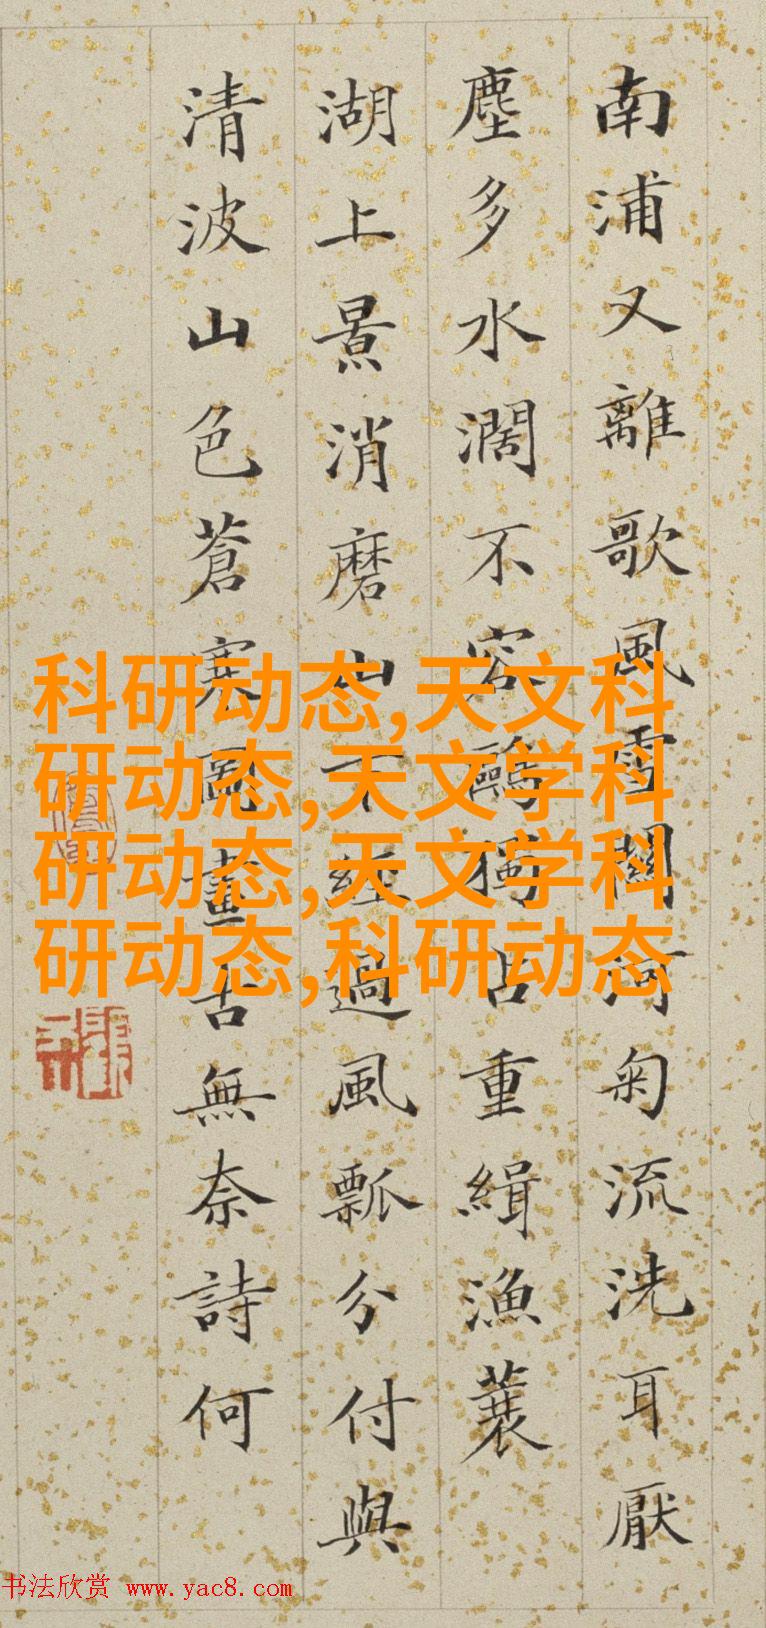 南浦又離歌風雪關河匊流洗耳厭
塵多水濶不容鷗獨占重緝漁蓑
湖上景消磨山下經過風瓢分付與
清波山色蒼寒圖畫古無奈詩何
科研动态,天文科
研动态,天文学科
研动态,天文学科
研动态,科研动态
书法欣赏 www.yac8.com